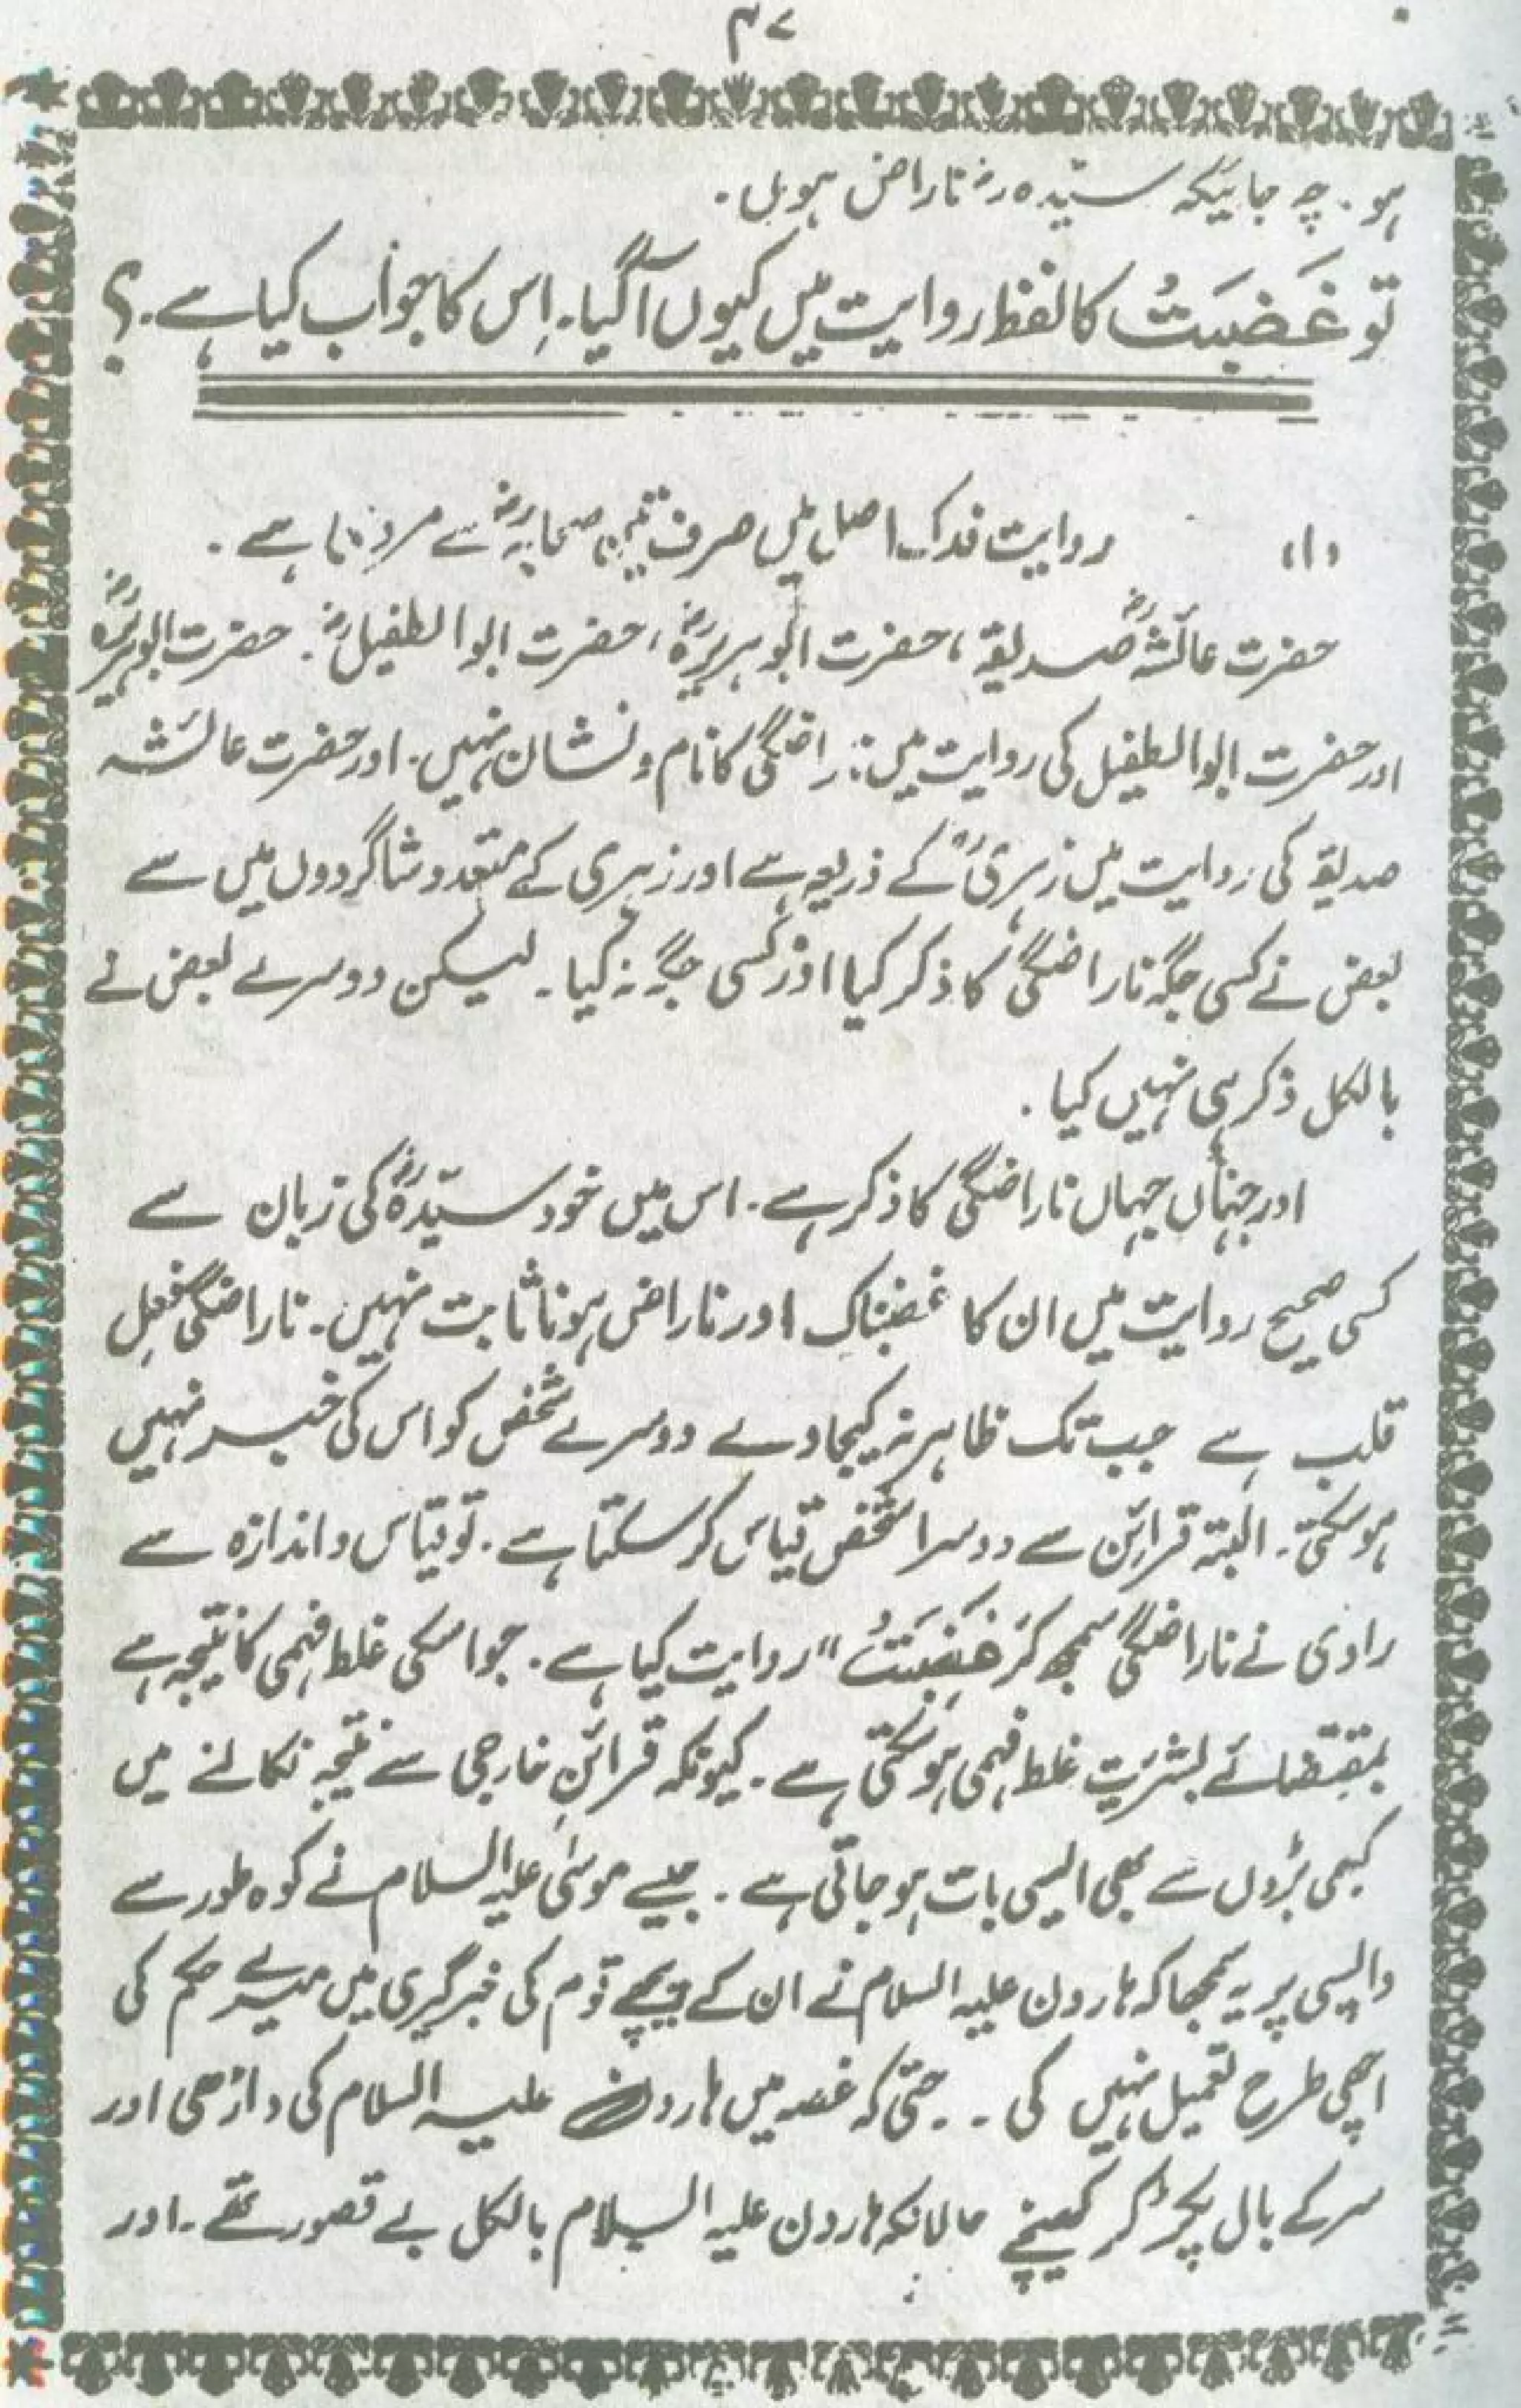 ۴۷
ہو. چہ جائیکہ سیّدہ رض ناراض ہوں.
تو غَضِبَتْ کا لفظ روایت میں کیوں آگیا. اِس کا جواب کیا ہے.؟
(۱) روایت فدک اصل میں صرف تین صحابہ رض سے مروی ہے.
حضرت عائشہ رض صدیقہ، حضرت ابوہریرہ رض، حضرت ابوالطفیل رض. حضرت ابوہریرہ رض
اور حضرت ابوالطفیل کی روایت میں ناراضگی کا نام و نشان نہیں. اور حضرت عائشہ
صدیقہ کی روایت میں زہری کے ذریعہ سے اور زہری کے متعدد شاگردوں میں سے
بعض نے کسی جگہ ناراضگی کا ذکر کیا اور کسی جگہ نہ کیا. لیکن دوسرے بعض نے
بالکل ذکر ہی نہیں کیا.
اور جہاں جہاں ناراضگی کا ذکر ہے. اس میں خود سیّدہ رض کی زبان سے
کسی صحیح روایت میں ان کا غضبناک اور ناراض ہونا ثابت نہیں. ناراضگی فعِل
قلب ہے جب تک ظاہر نہ کیجاوے دوسرے شخص کو اس کی خبر نہیں
ہو سکتی. البتہ قرائن سے دوسرا شخص قیاس کر سکتا ہے. تو قیاس و اندازہ سے
راوی نے ناراضگی سمجھ کر غَضِبَتْ" روایت کیا ہے. جو اسکی غلط فہمی کا نتیجہ ہے
بمقتضائے بشریت غلط فہمی ہو سکتی ہے. کیونکہ قرائنِ خارجی سے نتیجہ نکالنے میں
کبھی بڑوں سے بھی ایسی بات ہو جاتی ہے. جیسے موسیٰ علیہ السلام نے کوہ طور سے
واپسی پر یہ سمجھا کہ ہارون علیہ السلام نے ان کے پیچھے قوم کی خبرگیری میں میرے حکم کی
اچھی طرح تعمیل نہیں کی. حتیٰ کہ غصہ میں ہارون علیہ السلام کی داڑھی اور
سر کے بال پکڑ کر کھینچے حالانکہ ہارون علیہ السلام بالکل بے قصور تھے. اور